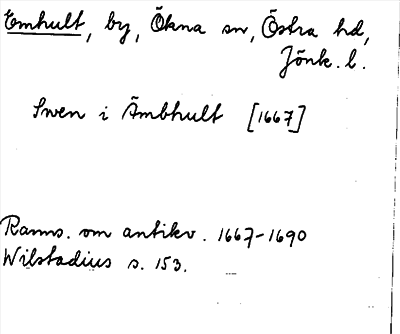 Emhult, by, Ökna sn, Östra hd,
Jönk. l.
Swen i Ämbhult [1667]
Ranns. om antikv. 1667-1690
Wilstadius s. 153.